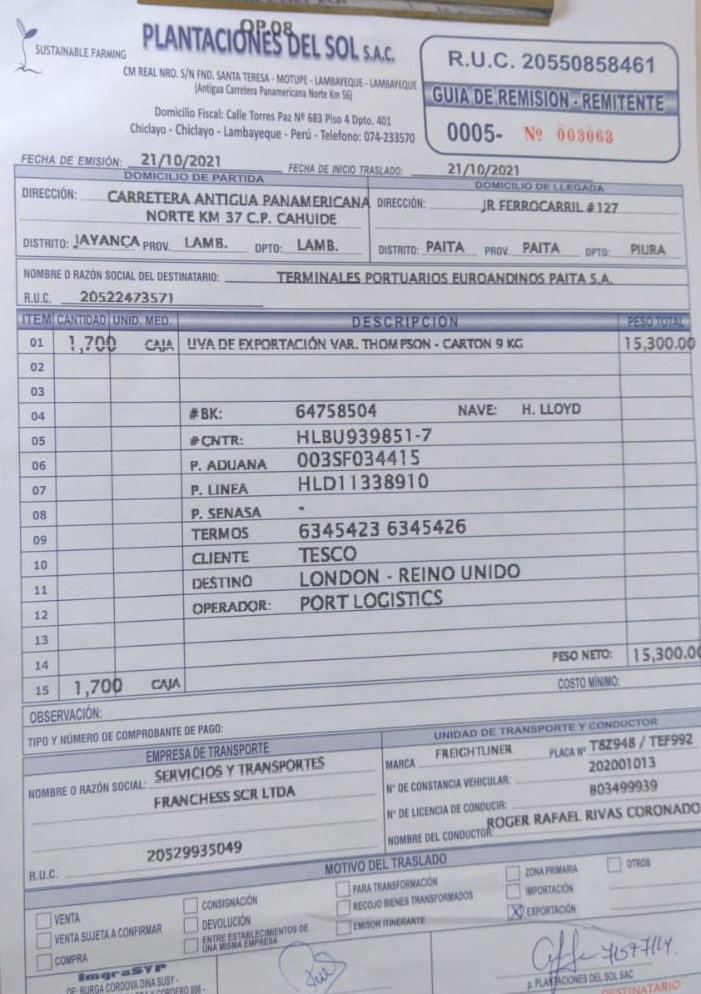 OP.08
SUSTAINABLE FARMING
PLANTACIONES DEL SOL S.A.C.
CM REAL NRO. S/N FND. SANTA TERESA - MOTUPE - LAMBAYEQUE - LAMBAYEQUE
(Antigua Carretera Panamericana Norte Km 56)
Domicilio Fiscal: Calle Torres Paz Nº 683 Piso 4 Dpto. 401
Chiclayo - Chiclayo - Lambayeque - Perú - Telefono: 074-233570
R.U.C. 20550858461
GUIA DE REMISION - REMITENTE
0005- Nº 003063
FECHA DE EMISIÓN: 21/10/2021 FECHA DE INICIO TRASLADO: 21/10/2021
DOMICILIO DE PARTIDA
DIRECCIÓN: CARRETERA ANTIGUA PANAMERICANA
NORTE KM 37 C.P. CAHUIDE
DISTRITO: JAYANCA PROV. LAMB. DPTO: LAMB.
DOMICILIO DE LLEGADA
DIRECCIÓN: JR FERROCARRIL #127
DISTRITO: PAITA PROV. PAITA DPTO: PIURA
NOMBRE O RAZÓN SOCIAL DEL DESTINATARIO: TERMINALES PORTUARIOS EUROANDINOS PAITA S.A.
R.U.C. 20522473571
ITEM CANTIDAD UNID. MED. DESCRIPCION PESO TOTAL
01 1,700 CAJA UVA DE EXPORTACIÓN VAR. THOMPSON - CARTON 9 KG 15,300.00
02
03
04 #BK: 64758504 NAVE: H. LLOYD
05 #CNTR: HLBU939851-7
06 P. ADUANA 003SF034415
07 P. LINEA HLD11338910
08 P. SENASA -
09 TERMOS 6345423 6345426
10 CLIENTE TESCO
11 DESTINO LONDON - REINO UNIDO
12 OPERADOR: PORT LOGISTICS
13
14 PESO NETO: 15,300.00
15 1,700 CAJA COSTO MÍNIMO:
OBSERVACIÓN:
TIPO Y NÚMERO DE COMPROBANTE DE PAGO:
EMPRESA DE TRANSPORTE
NOMBRE O RAZÓN SOCIAL: SERVICIOS Y TRANSPORTES
FRANCHESS SCR LTDA
R.U.C. 20529935049
UNIDAD DE TRANSPORTE Y CONDUCTOR
MARCA FREIGHTLINER PLACA Nº T8Z948 / TEF992
Nº DE CONSTANCIA VEHICULAR: 202001013
Nº DE LICENCIA DE CONDUCIR: B03499939
NOMBRE DEL CONDUCTOR: ROGER RAFAEL RIVAS CORONADO
MOTIVO DEL TRASLADO
VENTA
VENTA SUJETA A CONFIRMAR
COMPRA
CONSIGNACIÓN
DEVOLUCIÓN
ENTRE ESTABLECIMIENTOS DE
UNA MISMA EMPRESA
PARA TRANSFORMACIÓN
RECOJO BIENES TRANSFORMADOS
EMISOR ITINERANTE
ZONA PRIMARIA
IMPORTACIÓN
X EXPORTACIÓN
OTROS
ImgraSYP
DE: BURGA CORDOVA DINA SUSY -
p. PLANTACIONES DEL SOL SAC
DESTINATARIO